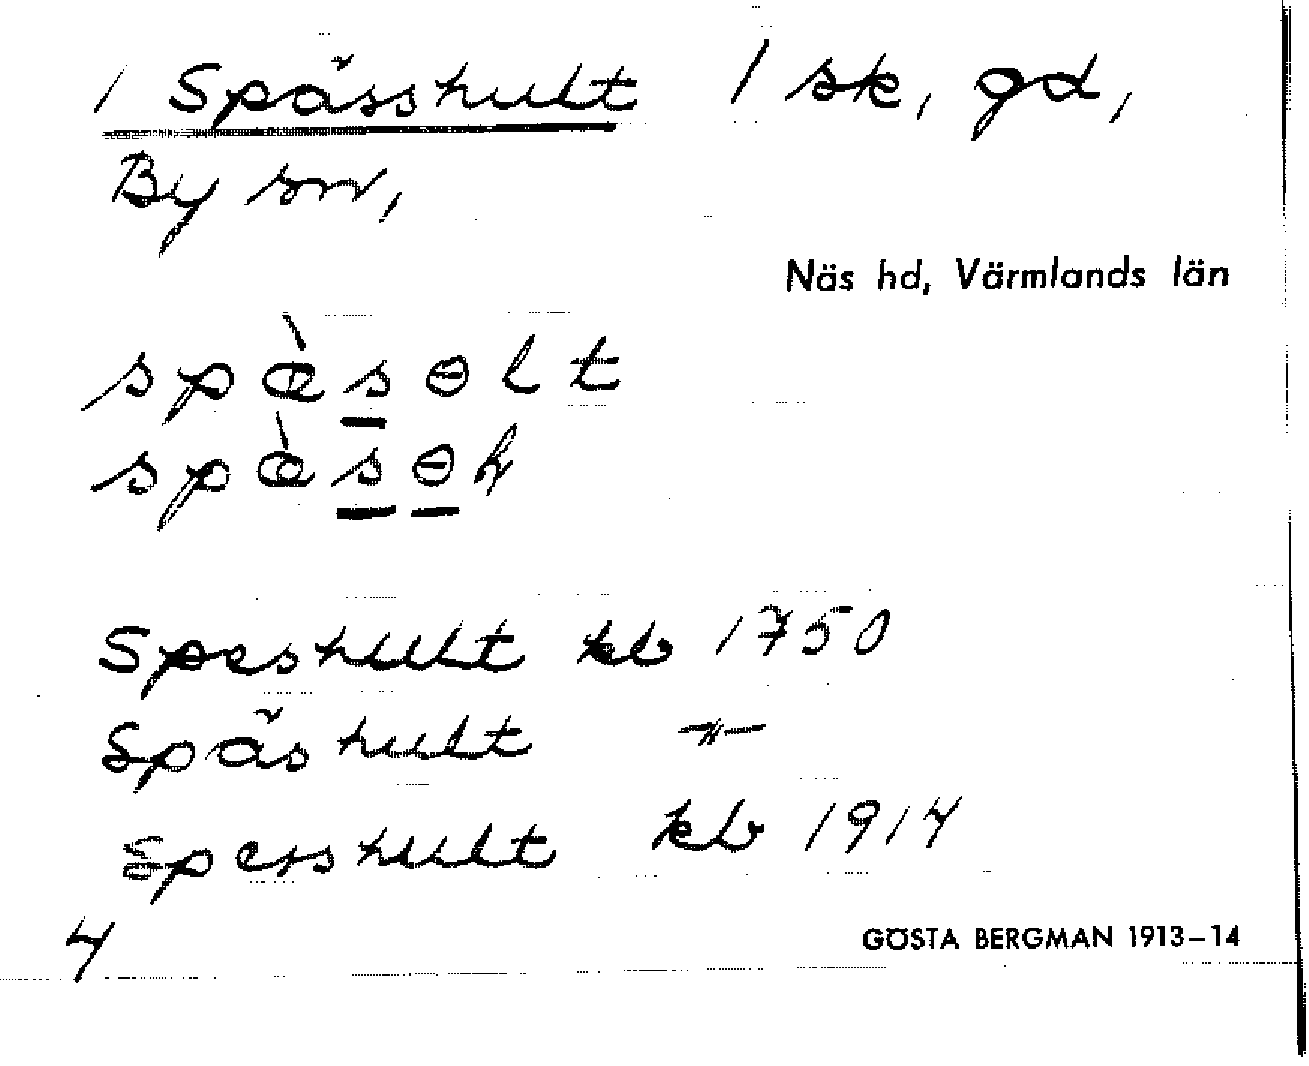 / Spässhult / sk, gd,
By sn,
Näs hd, Värmlands län
spæ̀sɵlt
spæ̀sɵḷ
Speshult kb 1750
Späshult –"–
Spesshult kb 1914
4
GÖSTA BERGMAN 1913–14